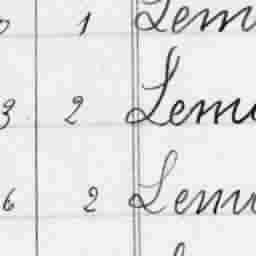 0 1 Lem
3 2 Lem
6 2 Lem